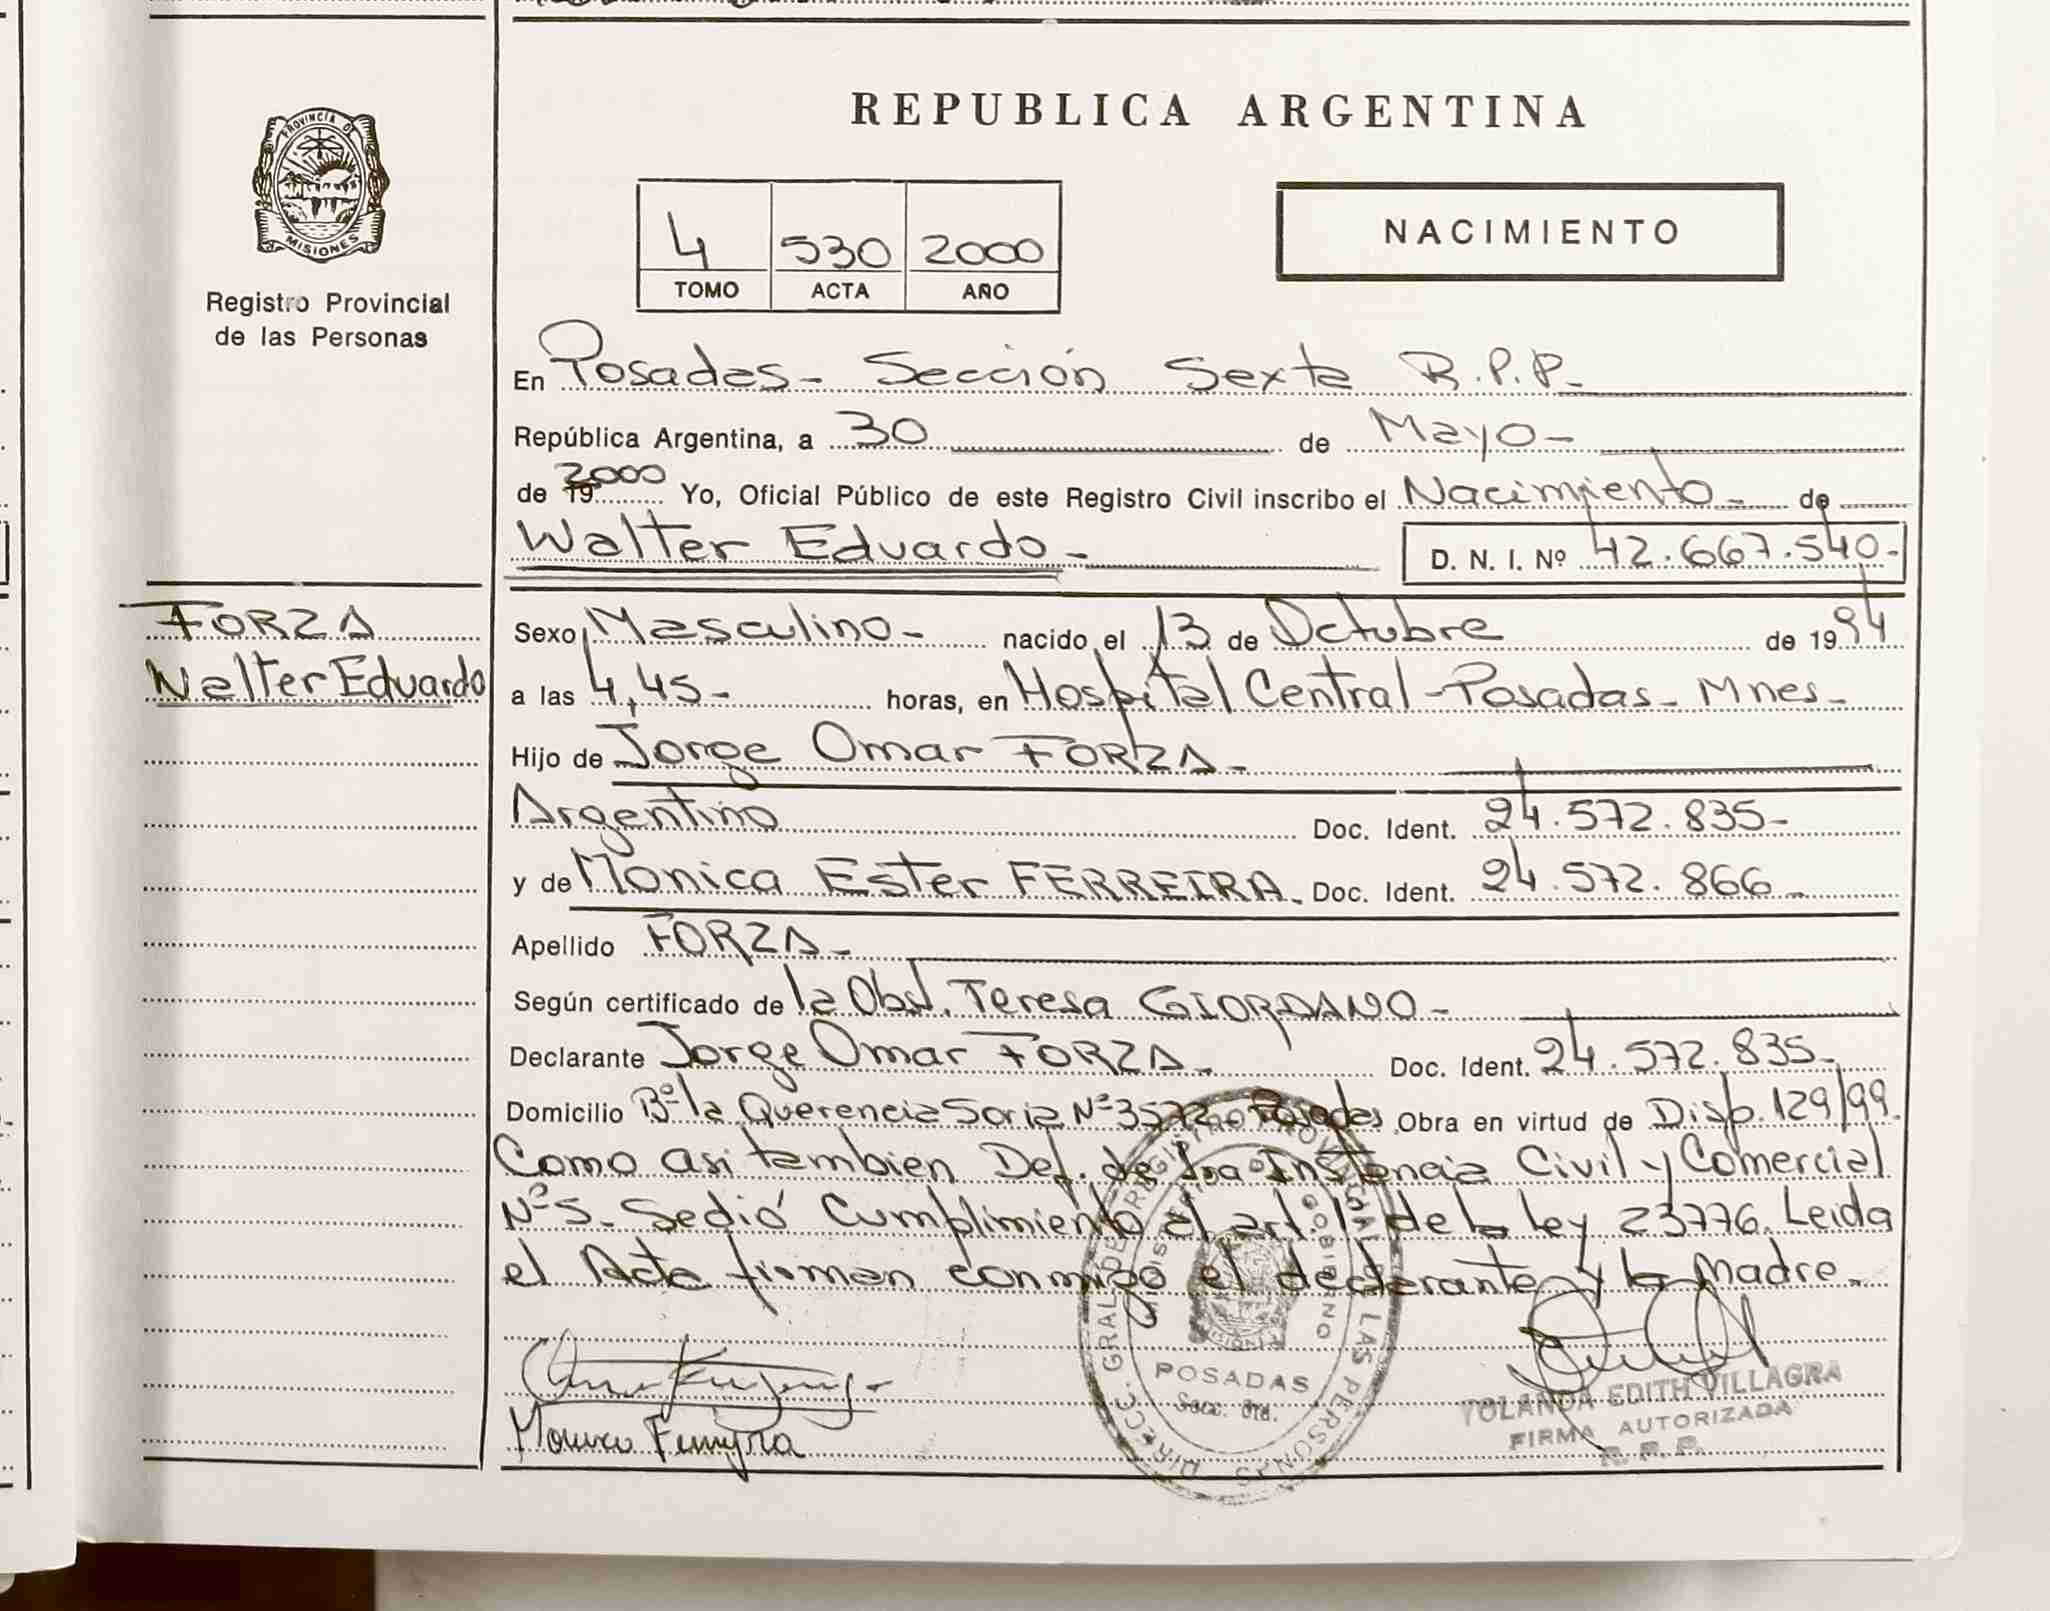 PROVINCIA DE
MISIONES
Registro Provincial
de las Personas
FORZA
Walter Eduardo
REPUBLICA ARGENTINA
4 530 2000
TOMO ACTA AÑO
NACIMIENTO
En Posadas - Sección Sexta R.P.P.-
República Argentina, a 30 de Mayo-
de 19 2000 Yo, Oficial Público de este Registro Civil inscribo el Nacimiento - de
Walter Eduardo -
D. N. I. Nº 42.667.540-
Sexo Masculino - nacido el 13 de Octubre de 1994
a las 4,45- horas, en Hospital Central - Posadas - Mnes -
Hijo de Jorge Omar FORZA -
Argentino Doc. Ident. 24.572.835-
y de Monica Ester FERREIRA. Doc. Ident. 24.572.866 -
Apellido FORZA -
Según certificado de la Obst. Teresa GIORDANO -
Declarante Jorge Omar FORZA - Doc. Ident. 24.572.835-
Domicilio Bº la Querencia Soria Nº 3572 - Posadas Obra en virtud de Disp. 129/99.
Como asi tambien Def. de 1ra Instancia Civil y Comercial
Nº 5- Se dió Cumplimiento al art. 1º de la ley 23776. Leida
el Acta firman conmigo el declarante y la Madre -
DIRECC. GRAL. DE REGISTRO PROVINCIAL LAS PERSONAS
GOBIERNO
POSADAS
Secc. 6ta.
YOLANDA EDITH VILLAGRA
FIRMA AUTORIZADA
R. P. P.